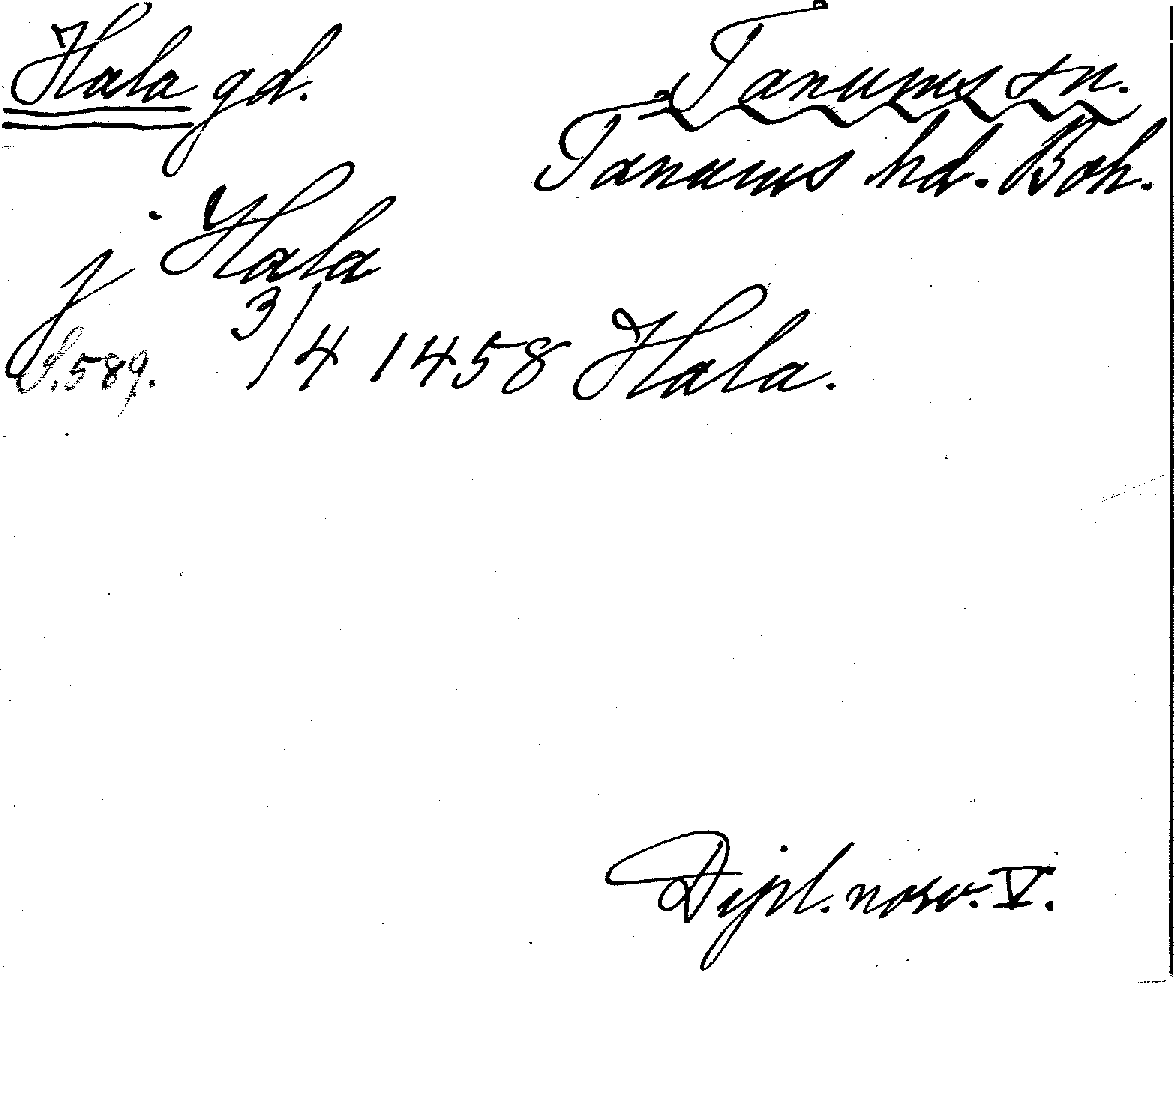 Hala gd.
Tanums sn.
Tanums hd. Boh.
j Hala
S. 589. 3/4 1458 Hala.
Dipl. norv. V.